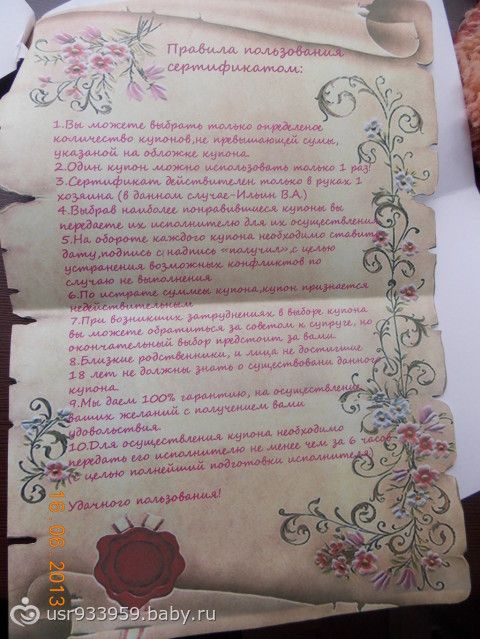 Правила пользования
сертификатом:
1.Вы можете выбрать только определеное
количество купонов,не превышающей сумы,
указаной на обложке купона.
2.Один купон можно использовать только 1 раз!
3.Сертификат действителен только в руках 1
хозяина (в данном случае-Ильин В.А.)
4.Выбрав наиболее понравившиеся купоны вы
передаете их исполнителю для их осуществления
5.На обороте каждого купона необходимо ставить
дату,подпись с надпись «получил»,с целью
устранения возможных конфликтов по
случаю не выполнения
6.По истрате суммы купона,купон признается
недействительным
7.При возникших затруднениях в выборе купона
вы можете обратиться за советом к супруге, но
окончательный выбор предстоит за вами.
8.Близкие родственники, и лица не достигшие
18 лет не должны знать о существовани данного
купона.
9.Мы даем 100% гарантию, на осуществление
ваших желаний с получением вами
удовольствия.
10.Для осуществления купона необходимо
передать его исполнителю не менее чем за 6 часов
(с целью полнейший подготовки исполнителя)
Удачного пользования!
16.06.2013
usr933959.baby.ru